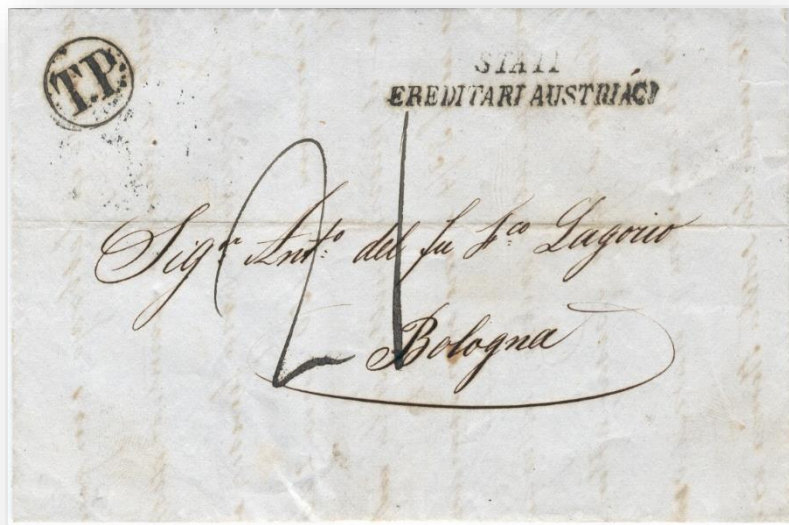 T.P.
STATI
EREDITARI AUSTRIACI
21
Sigr. Anto. del fu Fco Lagorio
Bologna